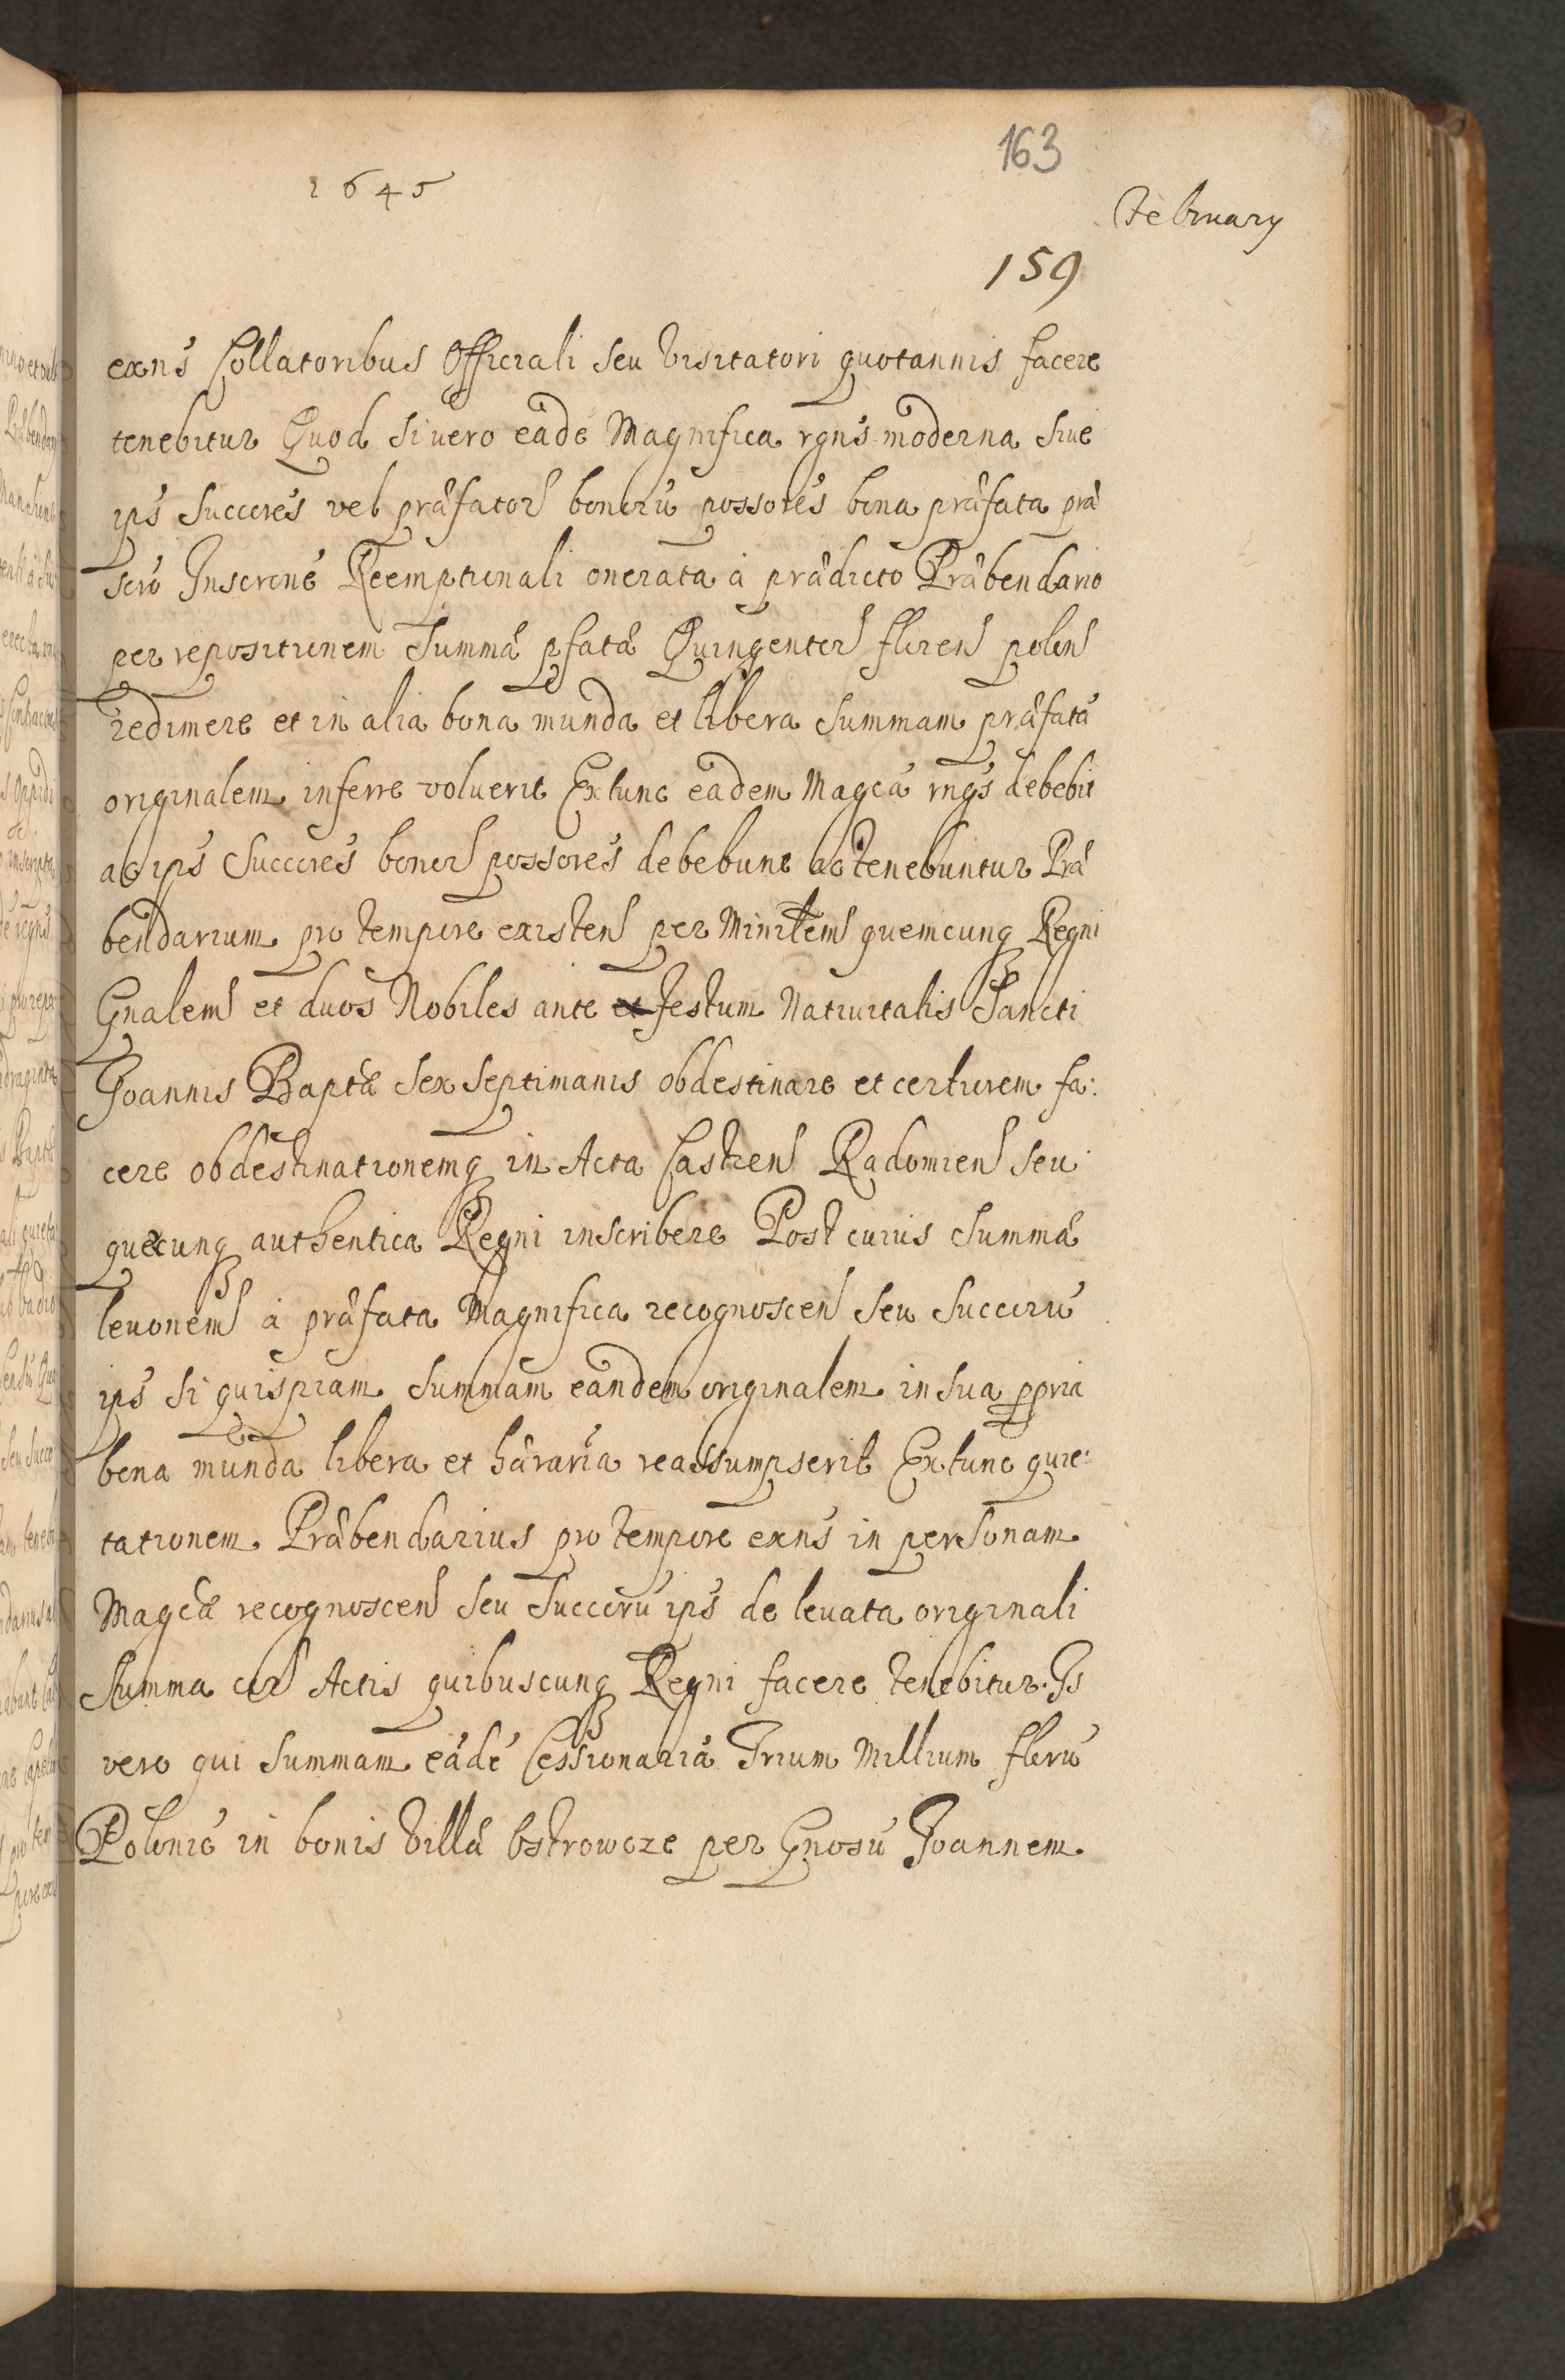 163
1645
February
159
exns Collatoribus Officiali seu Visitatori quotannis facere
tenebitur Quod si vero eadē Magnifica rgns moderna siue
ips Succores vel præfator bonorū possores bona præfata præ
scrō Inscrone Reemptionali onerata à prædicto Præbendario
per repositionem summæ pfatæ Quingentor floren polon
redimere et in alia bona munda et libera summam præfatā
originalem inferre voluerit Extunc eadem Magca rngs debebit
ac ips Succores bonor possores debebunt ac tenebuntur Præ
bendarium pro tempore existen per Minrlem quemcunq Regni
Gnalem et duos Nobiles ante festum Natiuitatis Sancti
Joannis Baptæ sex septimanis obdestinare et certiorem fa:
cere obdestinationemq in Acta Castren Radomien seu
quæcunq authentica Regni inscribere Post cuius summæ
leuonem à præfata Magnifica recognoscen seu Succorū
ips si quispiam summam eandem originalem in sua ppria
bona munda libera et hæraria reassumpserit Extunc quie:
tationem Præbendarius pro tempore exns in personam
Magcæ recognoscen seu Succorū ips de leuata originali
Summa cor Actis quibuscunq Regni facere tenebitur. Is
vero qui summam eādē Cessionariā Trium Millium florū
Polonic in bonis Villæ Ostrowcze per Gnosū Joannem